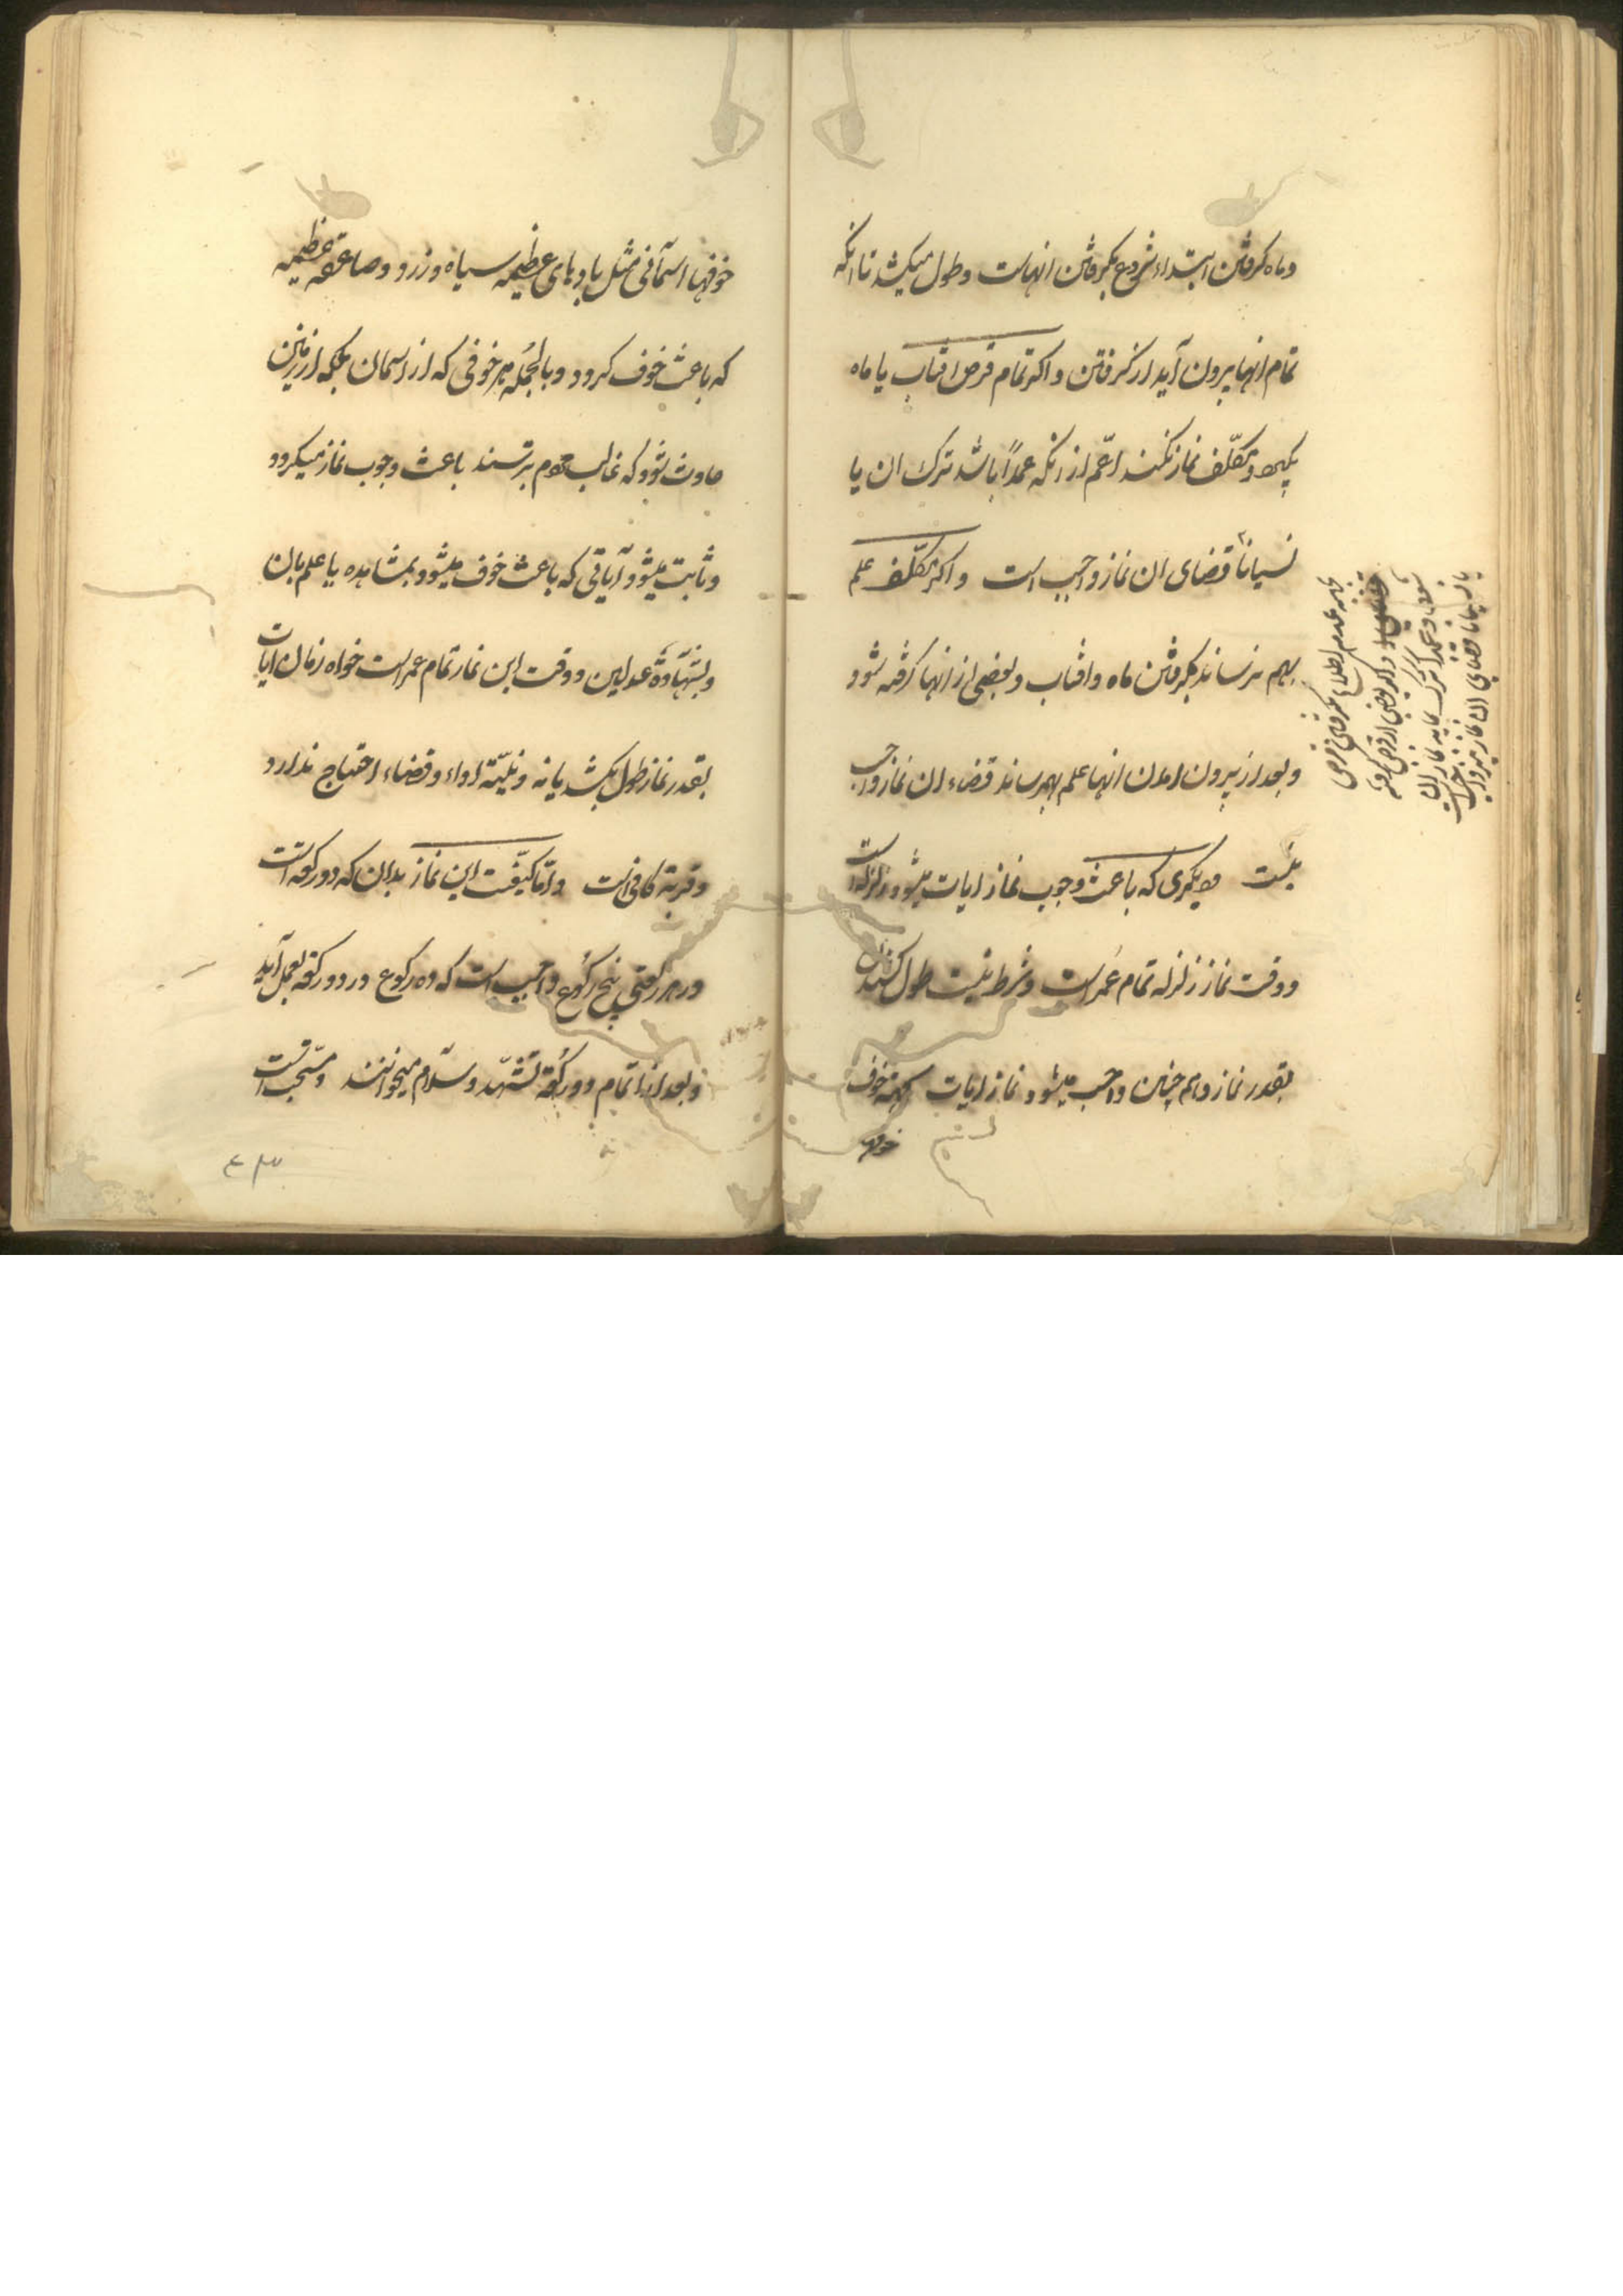 وماه کرفتن ابتداء شروع بکرفتن انهاست وطول میکشد تا انکه
تمام انها بیرون آید از کرفتن واکر تمام قرص افتاب یا ماه
بکیرد ومکلّف نماز نکند اعّم از انکه عمداً باشد ترک ان یا
نسیاناً قضای ان نماز واجب است واکر مکلّف علم
بهم نرساند بکرفتن ماه وافتاب وبعضی از انها کرفته شود
وبعد از بیرون امدن انها علم بهمرساند قضاء ان نماز واجب
نیست ودیکری که باعث وجوب نماز ایات میشود زلزله است
ووقت نماز زلزله تمام عُمر است وشرط نیست طول کشیدن ان
بقدر نماز وهم چنین واجب میشود نماز ایات بجهته خوف
خوفها
بجهة عدم اطلاع بکرفتن قرص
واکر بعضی از قرص کرفته
شود وعمداً ترک نماید نماز ان
یا نسیاناً قضای ان نماز نیز واجب است
خوفها اسمآنی مثل بادهای عظیمه سیاه وزرد وصاعقه عظیمه
که باعث خوف کردد وبالجُمله هر خوفی که از اسمان بلکه از زمین
حادث شود که غالب مردم بترسند باعث وجوب نماز میکردد
وثابت میشود آیاتی که باعث خوف میشود بمشاهده یا علم بان
وبشهادة عدلین ووقت این نماز تمام عمر است خواه زمان ایات
بقدر نماز طول بکشد یا نه ونیّة اداء وقضاء احتیاج ندارد
وقربة کافی است وامّا کیفّیت این نماز بدان که دو رکعة است
ودر هر رکعتی پنج رکُوع واجب است که ده رکوع در دو رکعة بعمل آید
وبعد از اتمام دو رکُعة تشهّد وسلام میخوانند ومستّحب است